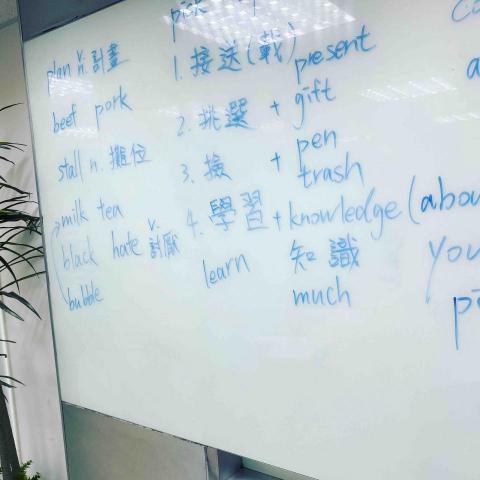 plan n. 計畫
beef pork
stall n. 攤位
milk tea
black hate v. 討厭
bubble
pick
1. 接送(載) present
gift
2. 挑選 +
pen
3. 撿 + trash
4. 學習 + knowledge (abou
learn 知識
much
you